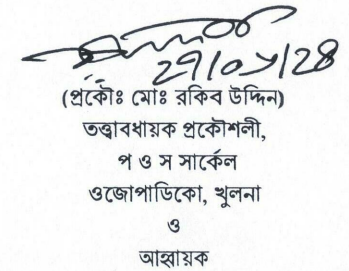 (প্রকৌঃ মোঃ রকিব উদ্দিন)
তত্ত্বাবধায়ক প্রকৌশলী,
প ও স সার্কেল
ওজোপাডিকো, খুলনা
ও
আহ্বায়ক